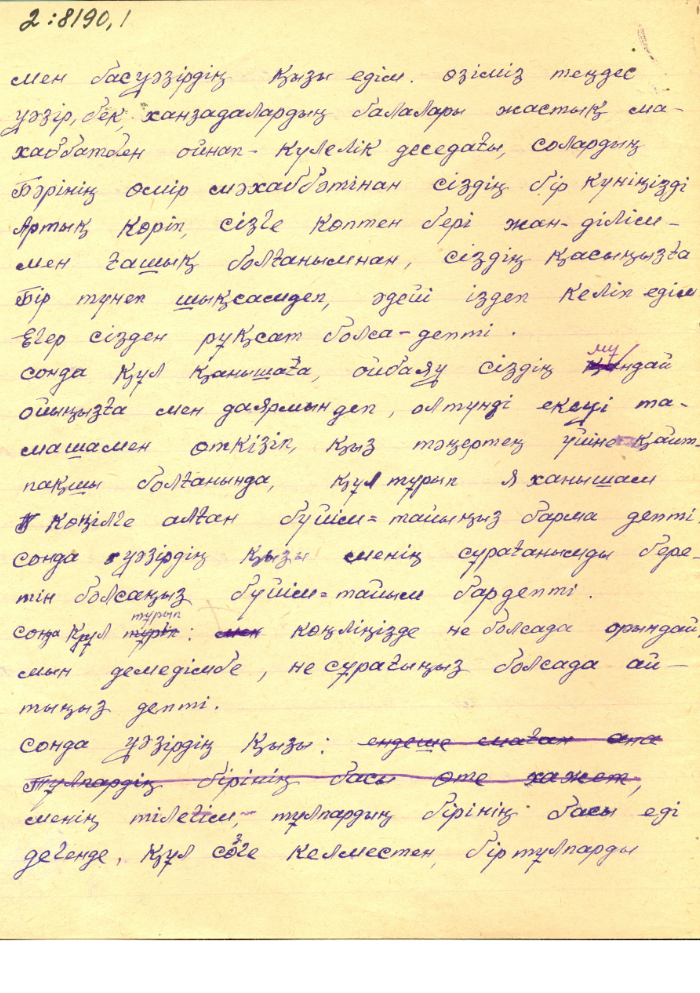 2:8190,1
мен басуәзірдің қызы едім. өзіміз теңдес
уәзір, бек, ханзадалардың балалары жастық ма-
хаббатбен ойнап-күлелік деседағы, солардың
бәрінің өмір мәхаббәтінан сіздің бір күніңізді
артық көріп, сізге көптен бері жан-ділім-
мен ғашық болғанымнан, сіздің қасыңызға
бір түнеп шықсамдеп, әдейі іздеп келіп едім
Егер сізден руқсат болса-депті.
сонда құл қанышаға, ойбаяу сіздің мұндай
ойыңызға мен даярмындеп, ол түнді екеуі та-
машамен өткізіп, қыз тәңертең үйіне қайт-
пақшы болғанында, құл тұрып я ханышам
көңілге алған бүйім=тайыңыз барма депті
сонда уәзірдің қызы менің сұрағанымды бере-
тін болсаңыз бүйім=тайым бардепті.
сонда құл тұрып: көңліңізде не болсада орындай-
мын демедімбе, не сұрағыңыз болсада ай-
тыңыз депті.
сонда уәзірдің қызы: ендеше маған ана
тұлпардің бірінің басы өте хажет,
менің тілегім,- тұлпардың бірінің басы еді
дегенде, құл сөзге келместен, бір тұлпарды